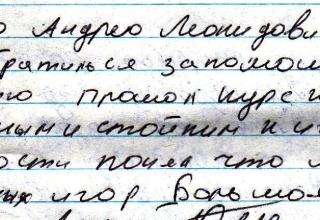 о Андрею Леонидови
братиться за помощ
то прошол курс и
ным и стойким к и
ости понял что
ных игор Большо